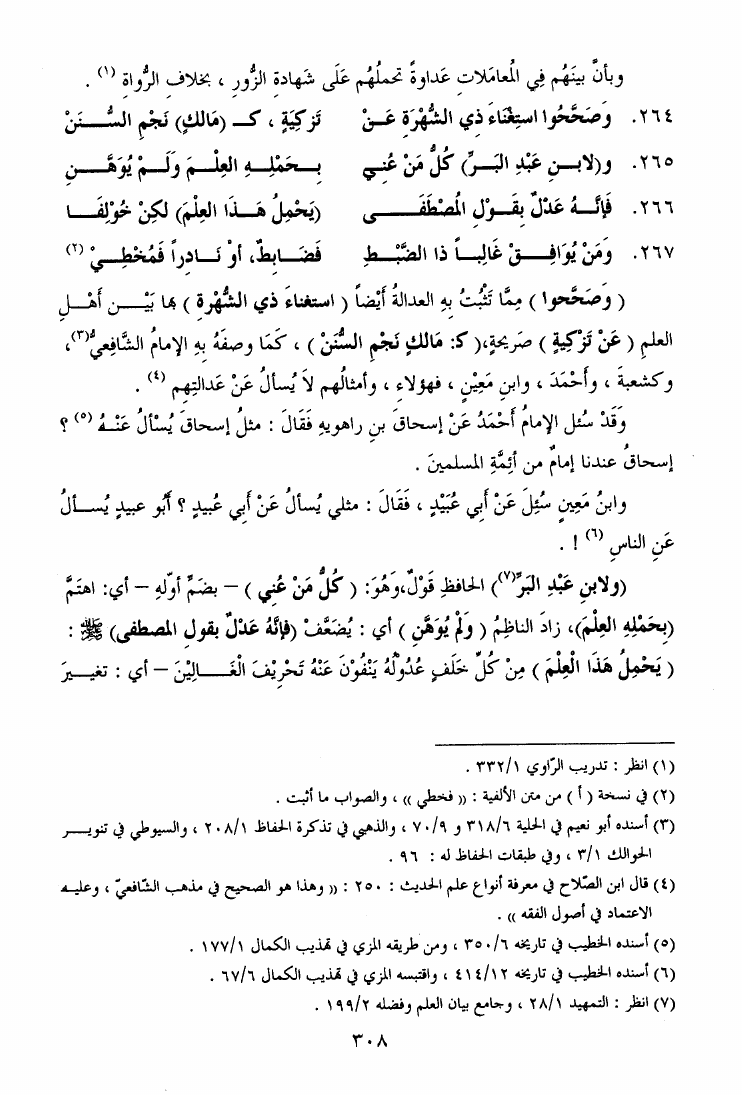 وبأنَّ بينَهُم فِي الْمعامَلاتِ عَداوةً تحملُهُم عَلَى شَهادةِ الزُّورِ ، بخلافِ الرُّواةِ (١) .
٢٦٤. وَصَحَّحُوا اسْتِغْنَاءَ ذي الشُّهْرَةِ عَـنْ تَزكِيَةٍ ، كـ (مَالكٍ) نَجْمِ السُّـنَنْ
٢٦٥. و(لابـنِ عَبْدِ البَـرِّ) كُلُّ مَنْ عُني بِـحَمْلِـهِ العِلْـمَ وَلَـمْ يُوَهَّـنِ
٢٦٦. فَإنَّـهُ عَدْلٌ بِقَـوْلِ الْمُصْطَفَـى (يَحْمِلُ هَـذَا العِلْمَ) لكِنْ خُوْلِفَـا
٢٦٧. وَمَنْ يُوَافِـقْ غَالِبـاً ذا الضَّبْـطِ فَضَـابِطٌ، أوْ نَـادِراً فَمُخْطِـيْ (٢)
( وَصَحَّحوا ) مِمَّا تَثْبُتُ بِهِ العدالةُ أَيْضاً ( استغناءَ ذي الشُّهْرةِ ) بها بَيْـنَ أَهْـلِ
العلمِ ( عَنْ تَزْكِيةٍ ) صَرِيحةٍ،( كـ: مَالكٍ نَجْمِ السُّنَنْ ) ، كَمَا وصفَهُ بِهِ الإمامُ الشَّافِعيُّ(٣)،
وكشعبةَ ، وأَحْمَدَ ، وابنِ مَعِيْنٍ ، فهؤلاءِ ، وأمثالُهم لاَ يُسألُ عَنْ عَدالتِهم (٤) .
وَقَدْ سُئل الإمامُ أَحْمَدُ عَنْ إسحاقَ بنِ راهويهِ فَقَالَ : مثلُ إسحاقَ يُسْألُ عَنْـهُ (٥) ؟
إسحاقُ عندنا إمامٌ من أئِمَّةِ المسلمينَ .
وابنُ مَعِينٍ سُئِلَ عَنْ أبي عُبَيْدٍ ، فَقَالَ : مثلي يُسألُ عَنْ أبي عُبيدٍ ؟ أَبُو عبيدٍ يُسـألُ
عَنِ الناسِ (٦) ! .
(ولابنِ عَبْدِ البَرِّ(٧)) الحافظِ قَوْلٌ،وَهُوَ: ( كُلُّ مَنْ عُنِي ) – بضمِّ أوّلهِ – أي: اهتمَّ
(بِحَمْلِهِ العِلْمَ)، زادَ الناظِمُ ( وَلَمْ يُوَهَّنِ ) أي : يُضَعَّفْ (فإنَّهُ عَدْلٌ بقولِ المصطفى) ﷺ :
( يَحْمِلُ هَذَا الْعِلْمَ ) مِنْ كُلِّ خَلَفٍ عُدُوْلُهُ يَنْفُوْنَ عَنْهُ تَحْرِيْفَ الْغَـالِيْنَ – أي : تغيـيرَ
(١) انظر : تدريب الرّاوي ٣٣٢/١ .
(٢) في نسخة ( أ ) من متن الألفية : (( فخطي )) ، والصواب ما أثبت .
(٣) أسنده أبو نعيم في الحلية ٣١٨/٦ و ٧٠/٩ ، والذهبي في تذكرة الحفاظ ٢٠٨/١ ، والسيوطي في تنويـر
الحوالك ٣/١ ، وفي طبقات الحفاظ له : ٩٦ .
(٤) قال ابن الصّلاح في معرفة أنواع علم الحديث : ٢٥٠ : (( وهذا هو الصحيح في مذهب الشّافعيّ ، وعليـه
الاعتماد في أصول الفقه )) .
(٥) أسنده الخطيب في تاريخه ٣٥٠/٦ ، ومن طريقه المزي في تهذيب الكمال ١٧٧/١ .
(٦) أسنده الخطيب في تاريخه ٤١٤/١٢ ، واقتبسه المزي في تهذيب الكمال ٦٧/٦ .
(٧) انظر : التمهيد ٢٨/١ ، وجامع بيان العلم وفضله ١٩٩/٢ .
٣٠٨